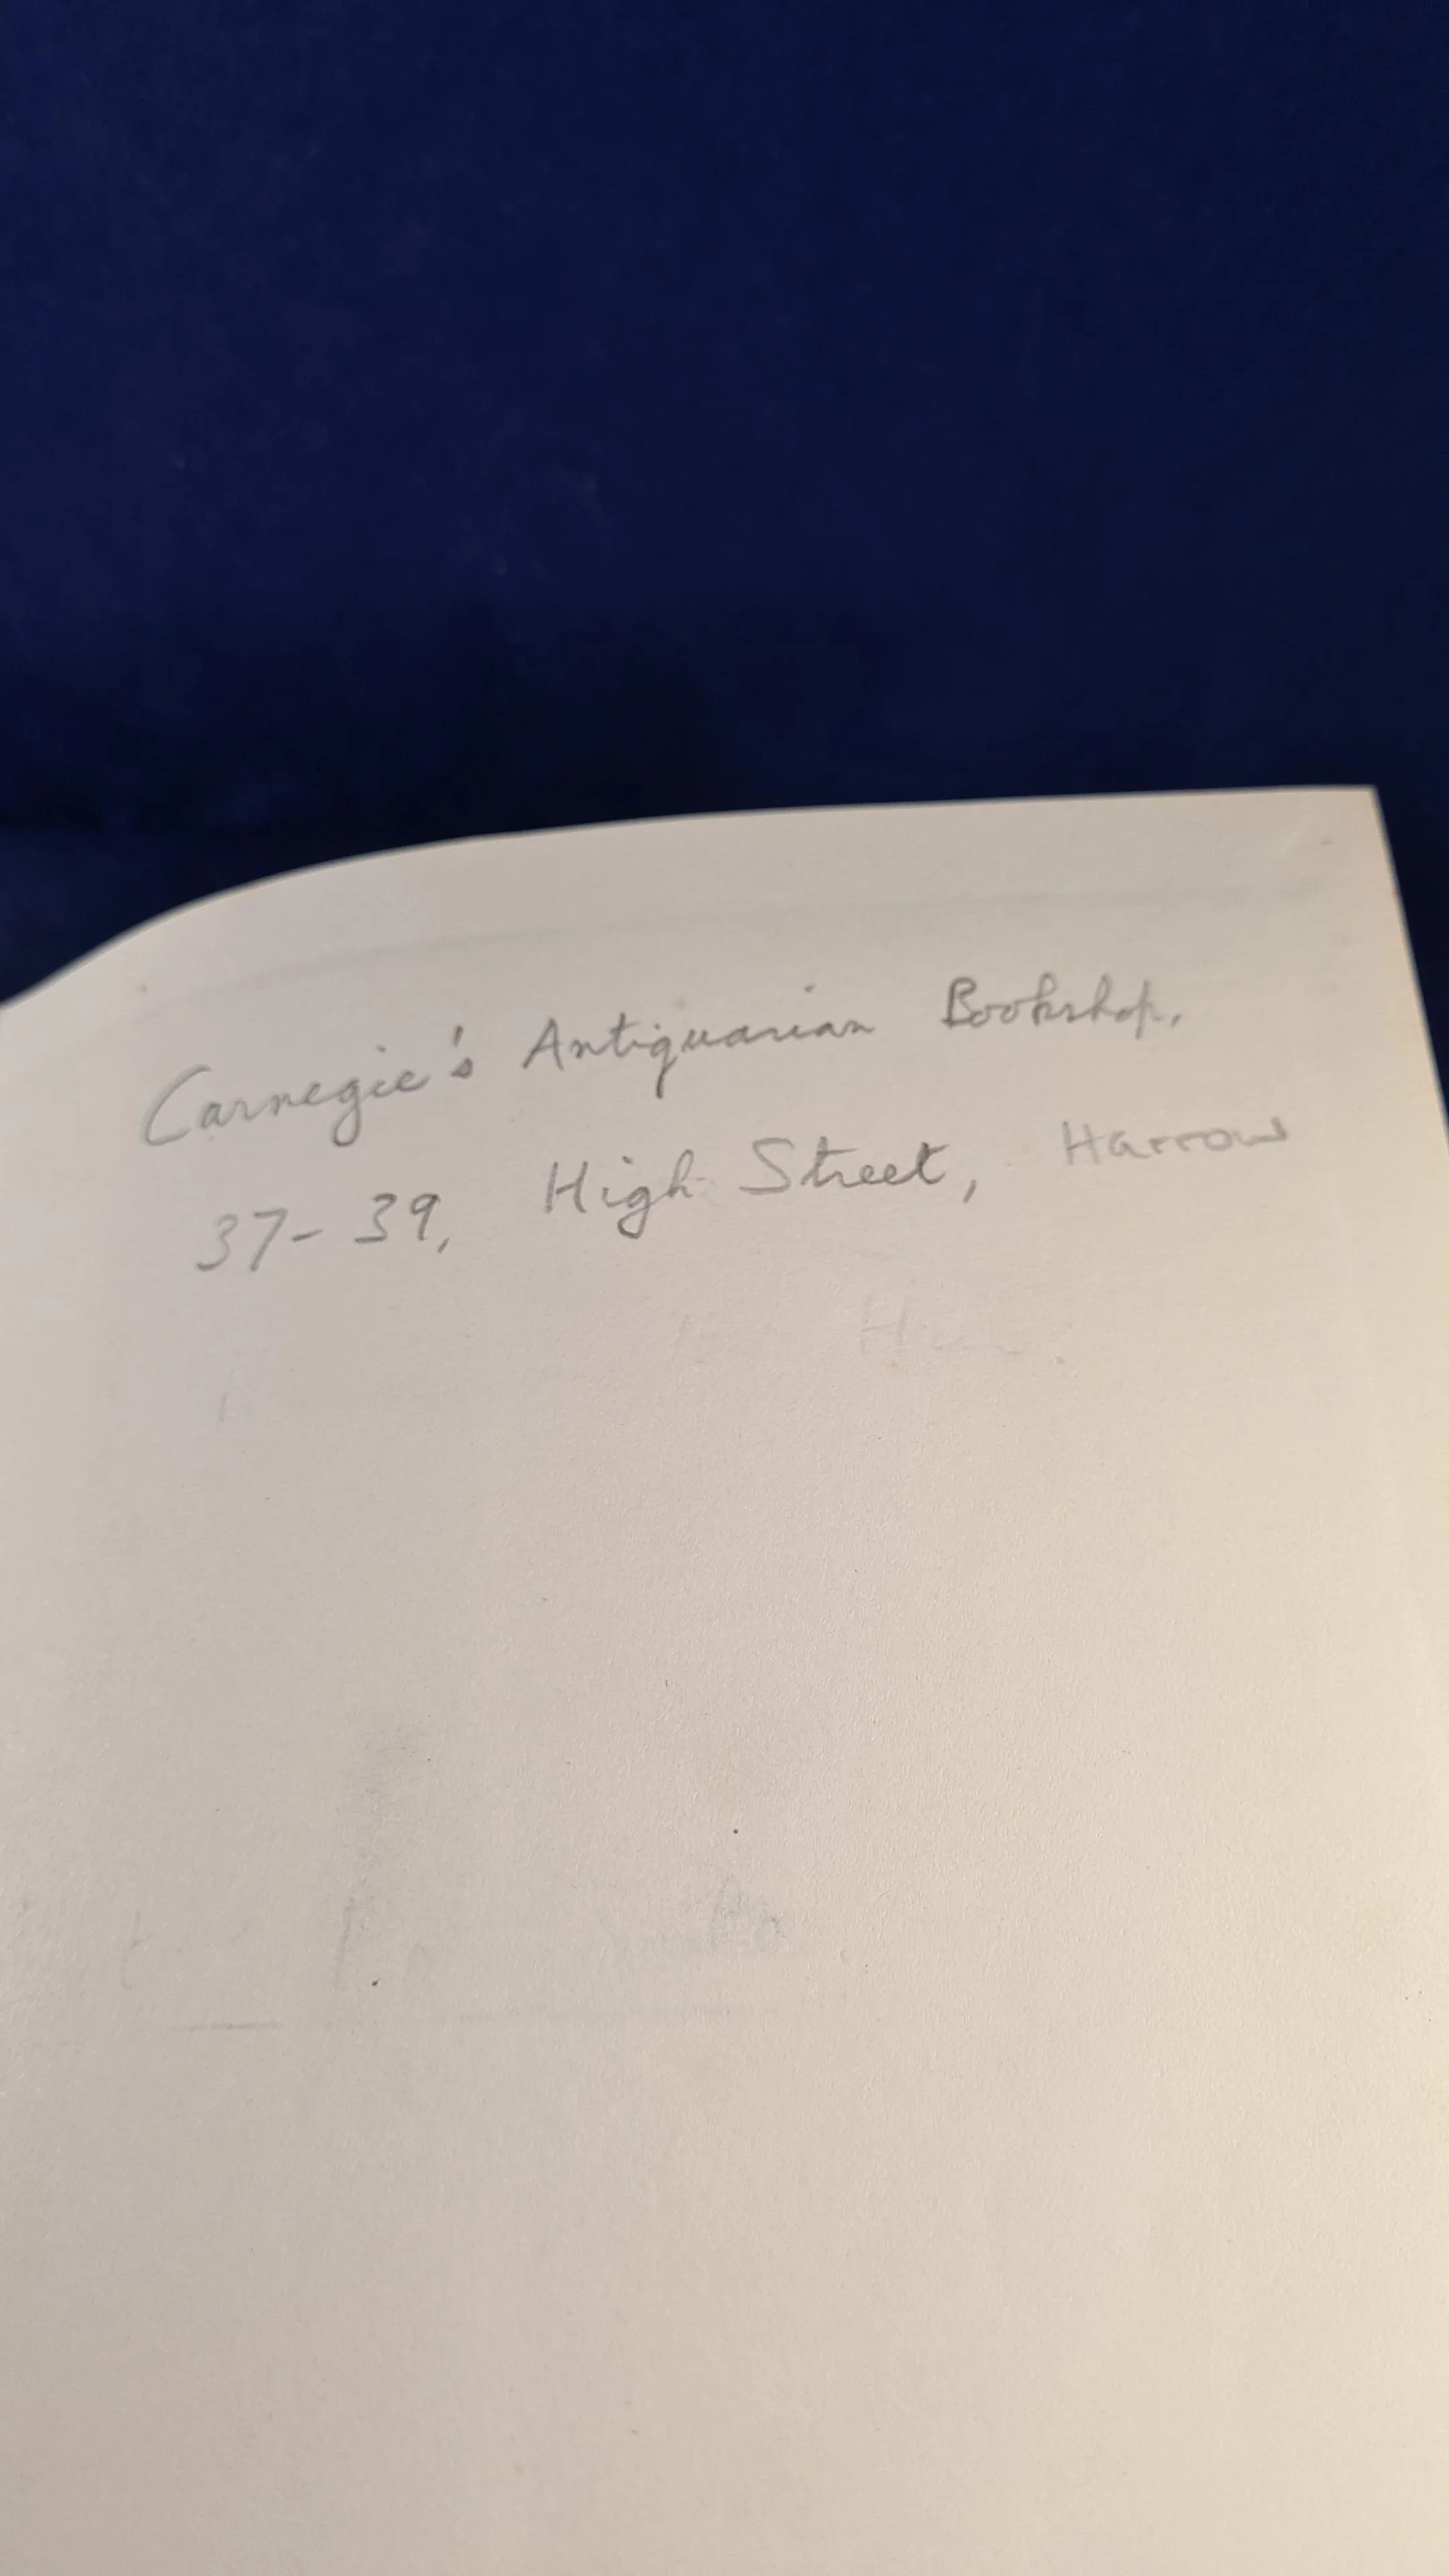 Carnegie's Antiquarian Bookshop,
37-39, High Street, Harrow